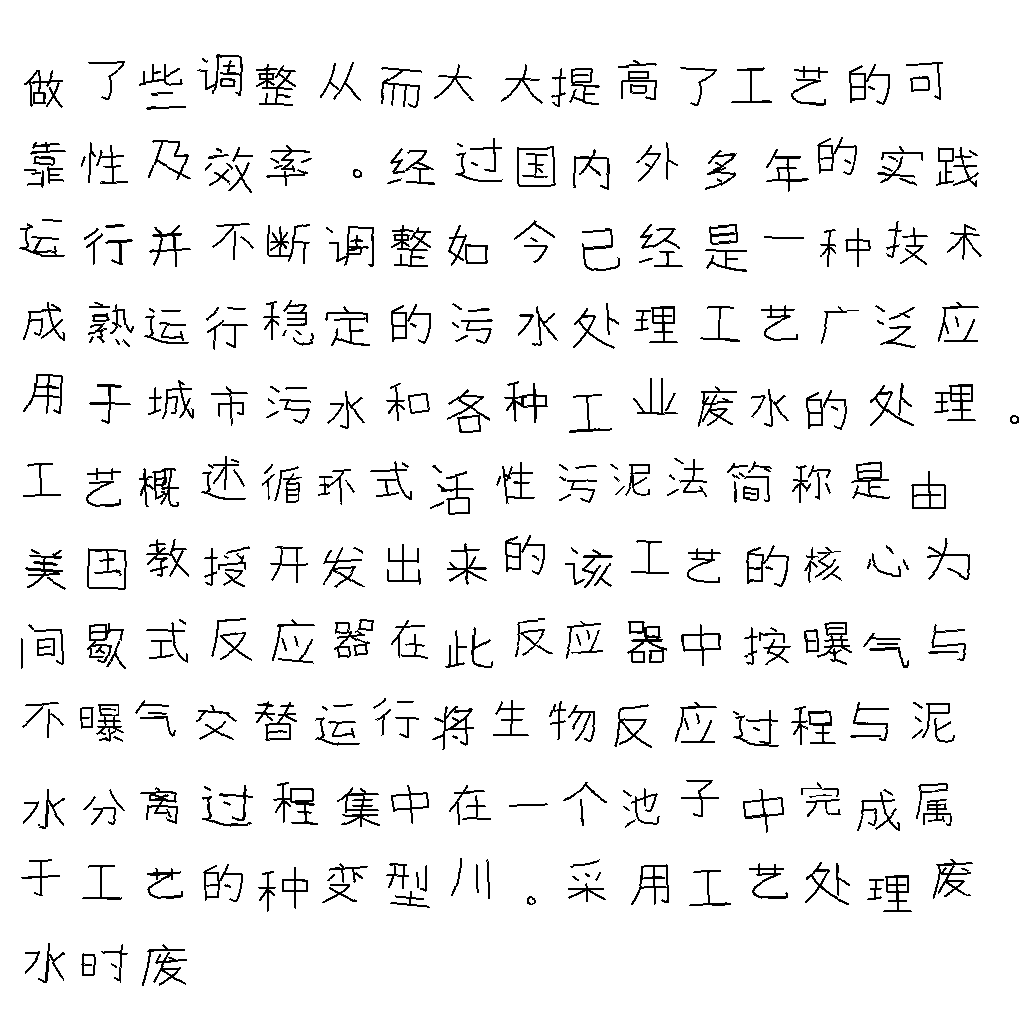 做了些调整从而大大提高了工艺的可
靠性及效率。经过国内外多年的实践
运行并不断调整如今已经是一种技术
成熟运行稳定的污水处理工艺广泛应
用于城市污水和各种工业废水的处理。
工艺概述循环式活性污泥法简称是由
美国教授开发出来的该工艺的核心为
间歇式反应器在此反应器中按曝气与
不曝气交替运行将生物反应过程与泥
水分离过程集中在一个池子中完成属
于工艺的种变型川。采用工艺处理废
水时废